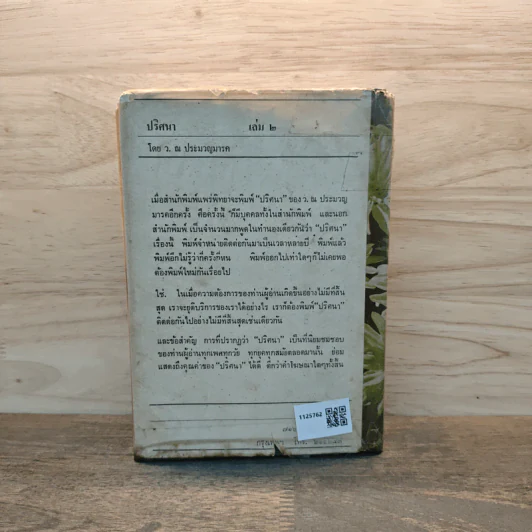 ปริศนา เล่ม ๒
โดย ว. ณ ประมวญมารค
เมื่อสำนักพิมพ์แพร่พิทยาจะพิมพ์ “ปริศนา” ของ ว. ณ ประมวญ
มารคอีกครั้ง คือครั้งนี้ ก็มีบุคคลทั้งในสำนักพิมพ์ และนอก
สำนักพิมพ์ เป็นจำนวนมากพูดในทำนองเดียวกันว่า “ปริศนา”
เรื่องนี้ พิมพ์จำหน่ายติดต่อกันมาเป็นเวลาหลายปี พิมพ์แล้ว
พิมพ์อีกไม่รู้ว่ากี่ครั้งกี่หน พิมพ์ออกไปเท่าใดๆก็ไม่เคยพอ
ต้องพิมพ์ใหม่กันเรื่อยไป
ใช่. ในเมื่อความต้องการของท่านผู้อ่านเกิดขึ้นอย่างไม่มีที่สิ้น
สุด เราจะยุติบริการของเราได้อย่างไร เราก็ต้องพิมพ์“ปริศนา”
ติดต่อกันไปอย่างไม่มีที่สิ้นสุดเช่นเดียวกัน
และข้อสำคัญ การที่ปรากฏว่า “ปริศนา” เป็นที่นิยมชมชอบ
ของท่านผู้อ่านทุกเพศทุกวัย ทุกยุคทุกสมัยตลอดมานั้น ย่อม
แสดงถึงคุณค่าของ “ปริศนา” ได้ดี ดีกว่าคำโฆษณาใดๆทั้งสิ้น
1125762